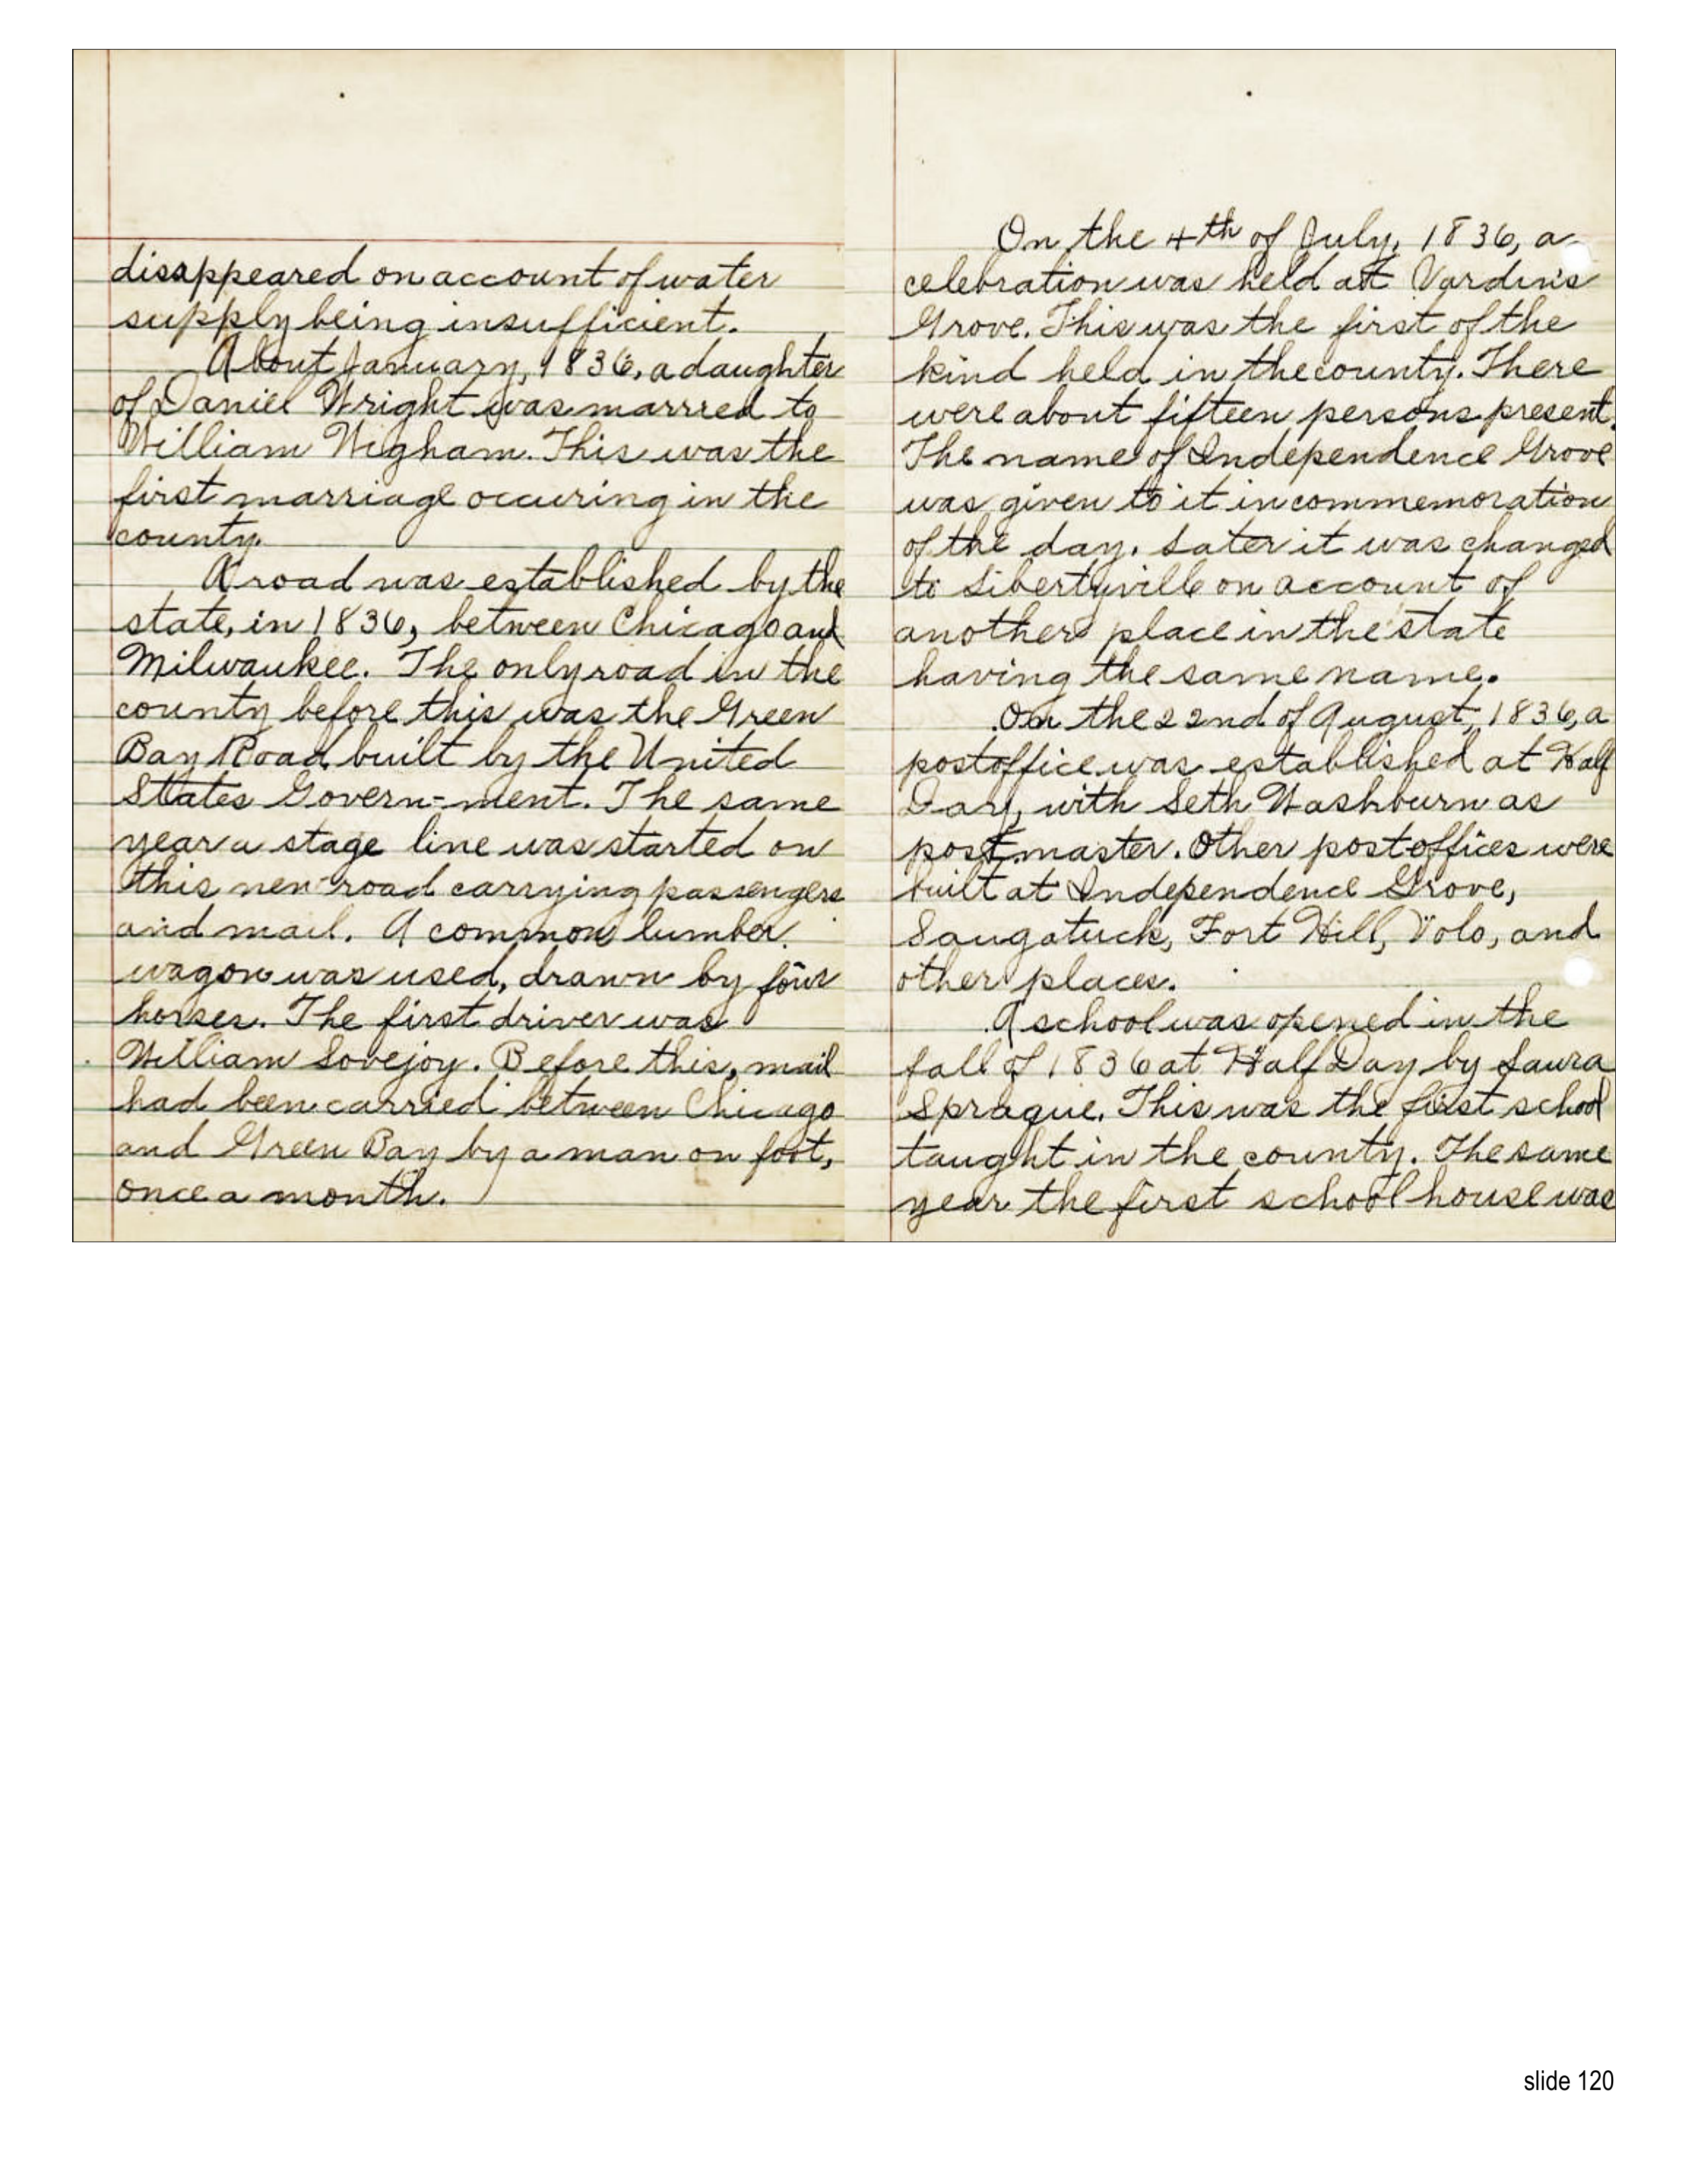 disappeared on account of water
supply being insufficient.
About January, 1836, a daughter
of Daniel Wright was marrred to
William Wigham. This was the
first marriage occuring in the
county.
A road was established by the
state, in 1836, between Chicago and
Milwaukee. The only road in the
county before this was the Green
Bay Road built by the United
States Govern-ment. The same
year a stage line was started on
this new road carrying passengers
and mail. A common lumber
wagon was used, drawn by four
horses. The first driver was
William Lovejoy. Before this, mail
had been carried between Chicago
and Green Bay by a man on foot,
once a month.
On the 4th of July, 1836, a
celebration was held at Vardin's
Grove. This was the first of the
kind held in the county. There
were about fifteen persons present.
The name of Independence Grove
was given to it in commemoration
of the day. Later it was changed
to Libertyville on account of
another place in the state
having the same name.
On the 22nd of August, 1836, a
postoffice was established at Half
Day, with Seth Washburn as
postmaster. Other postoffices were
built at Independence Grove,
Saugatuck, Fort Hill, Volo, and
other places.
A school was opened in the
fall of 1836 at Half Day by Laura
Sprague. This was the first school
taught in the county. The same
year the first school house was
slide 120